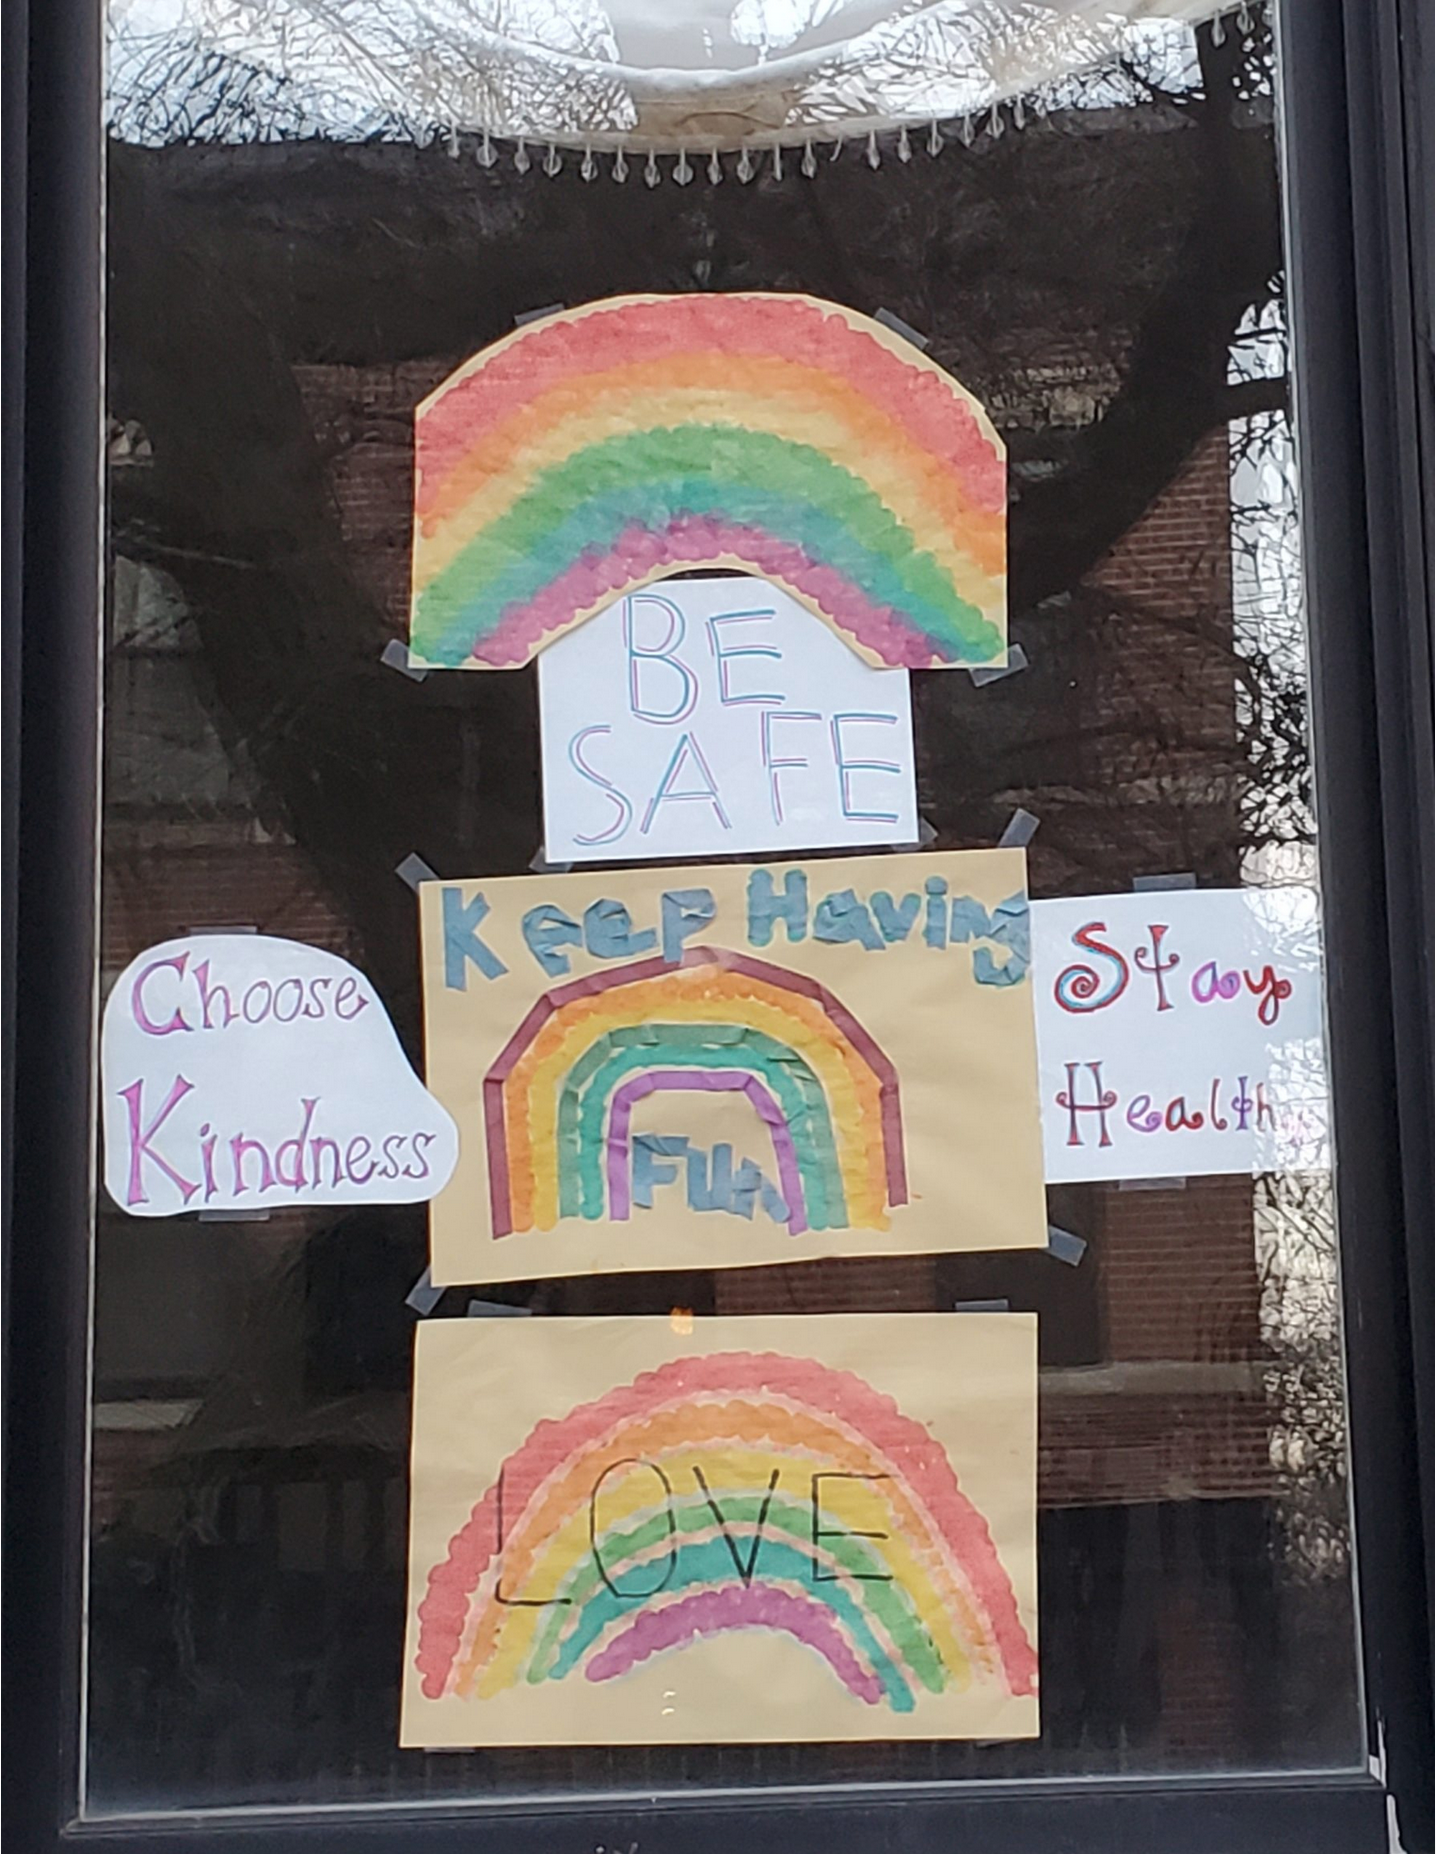 BE
SAFE
Keep Having
FUN
Choose
Kindness
Stay
Healthy
LOVE